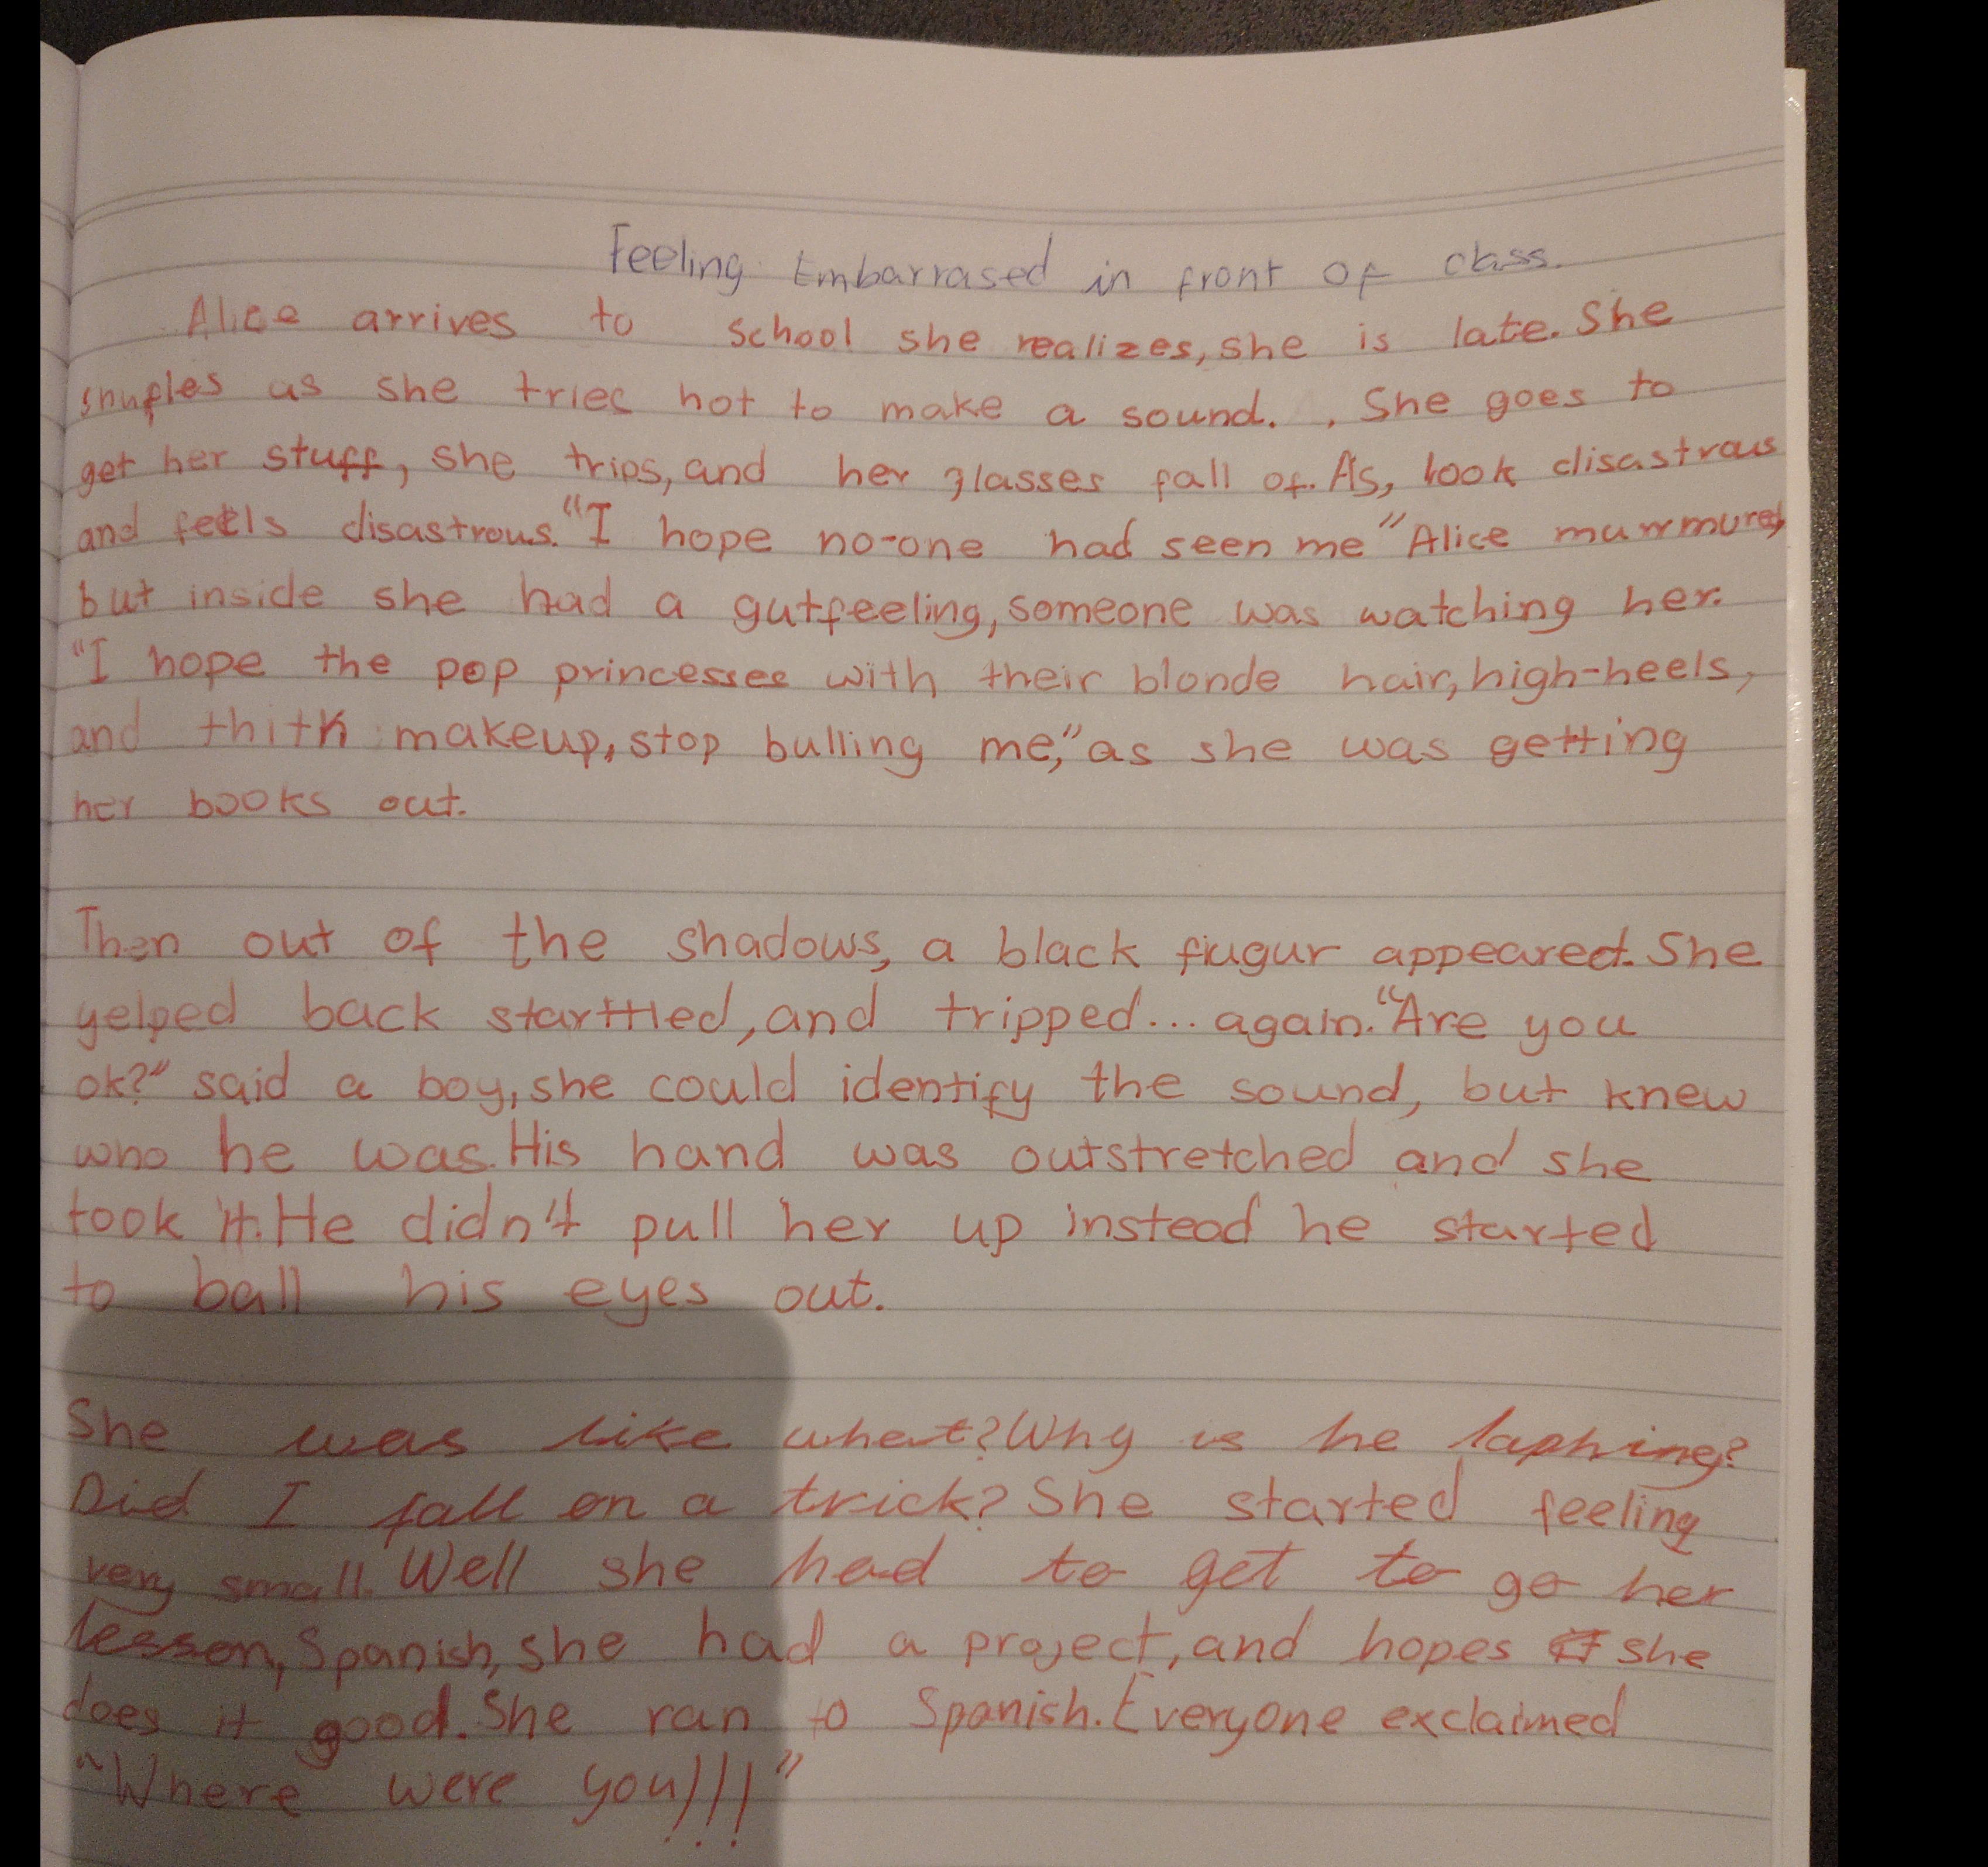 Feeling Embarrased in front of class.
Alice arrives to school she realizes, she is late. She
snufles as she tries not to make a sound. , She goes to
get her stuff, she trips, and her glasses fall of. As, look disastrous
and feels disastrous. "I hope no-one had seen me" Alice murmured,
but inside she had a gutfeeling, someone was watching her.
"I hope the pop princesses with their blonde hair, high-heels,
and thith makeup, stop bulling me," as she was getting
her books out.
Then out of the shadows, a black fiugur appeared. She
yelped back starttled, and tripped... again. "Are you
ok?" said a boy, she could identify the sound, but knew
who he was. His hand was outstretched and she
took it. He didn't pull her up instead he started
to ball his eyes out.
She was like what? Why is he laphing?
Did I fall on a trick? She started feeling
very small. Well she had to get to go her
lesson, Spanish, she had a project, and hopes she
does it good. She ran to Spanish. Everyone exclaimed
"Where were you!!!"